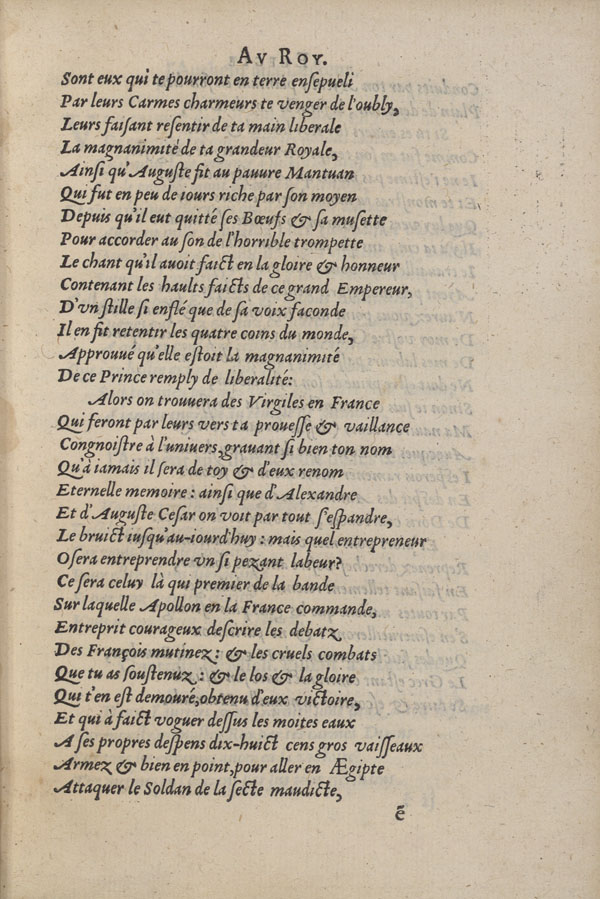 AV ROY.
Sont eux qui te pourront en terre enſepueli
Par leurs Carmes charmeurs te venger de l'oubly,
Leurs faiſant reſentir de ta main liberale
La magnanimité de ta grandeur Royale,
Ainſi qu'Auguſte fit au pauure Mantuan
Qui fut en peu de iours riche par ſon moyen
Depuis qu'il eut quitté ſes Bœufs & ſa muſette
Pour accorder au ſon de l'horrible trompette
Le chant qu'il auoit faict en la gloire & honneur
Contenant les haults faicts de ce grand Empereur,
D'vn ſtille ſi enflé que de ſa voix faconde
Il en fit retentir les quatre coins du monde,
Approuué qu'elle eſtoit la magnanimité
De ce Prince remply de liberalité:
Alors on trouuera des Virgiles en France
Qui feront par leurs vers ta proueſſe & vaillance
Congnoiſtre à l'uniuers, grauant ſi bien ton nom
Qu'à iamais il ſera de toy & d'eux renom
Eternelle memoire: ainſi que d'Alexandre
Et d'Auguſte Ceſar on voit par tout ſ'eſpandre,
Le bruict iuſqu'au-iourd'huy: mais quel entrepreneur
Oſera entreprendre vn ſi pezant labeur?
Ce ſera celuy là qui premier de la bande
Sur laquelle Apollon en la France commande,
Entreprit courageux deſcrire les debatz
Des François mutinez: & les cruels combats
Que tu as ſouſtenuz: & le los & la gloire
Qui t'en eſt demouré, obtenu d'eux victoire,
Et qui à faict voguer deſſus les moites eaux
A ſes propres deſpens dix-huict cens gros vaiſſeaux
Armez & bien en point, pour aller en Ægipte
Attaquer le Soldan de la ſecte maudicte,
ẽ